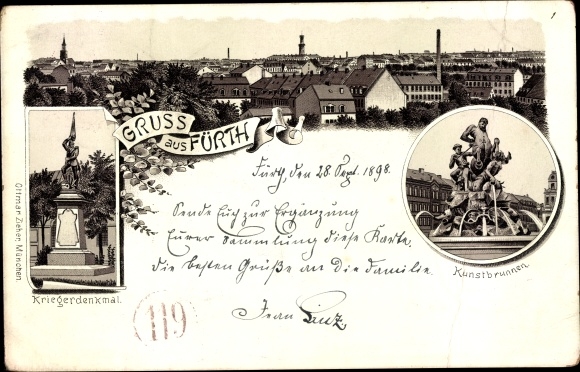 1
GRUSS
aus FÜRTH
Fürth, den 28. Sept. 1898.
Sende Euch zur Ergänzung
Eurer Sammlung diese Karte.
Die besten Grüße an die Familie.
Jean
Kriegerdenkmal.
Kunstbrunnen.
Ottmar Zieher, München.
119